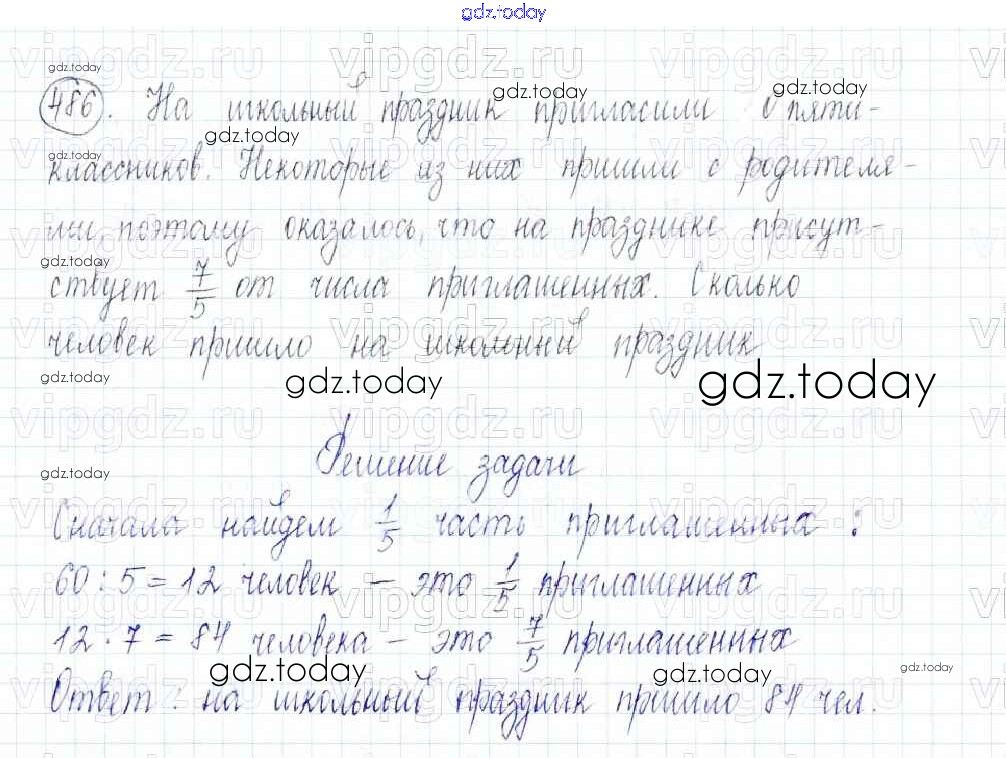 gdz.today
gdz.today
486. На школьный праздник пригласили 0 пяти-
gdz.today
gdz.today
gdz.today
классников. Некоторые из них пришли с родителя-
ми, поэтому оказалось, что на празднике присут-
gdz.today
ствует 7/5 от числа приглашенных. Сколько
человек пришло на школьный праздник
gdz.today
gdz.today
gdz.today
Решение задачи
gdz.today
Сначала найдем 1/5 часть приглашенных :
60 : 5 = 12 человек — это 1/5 приглашенных
12 · 7 = 84 человека — это 7/5 приглашенных
gdz.today
gdz.today
gdz.today
Ответ : на школьный праздник пришло 84 чел.